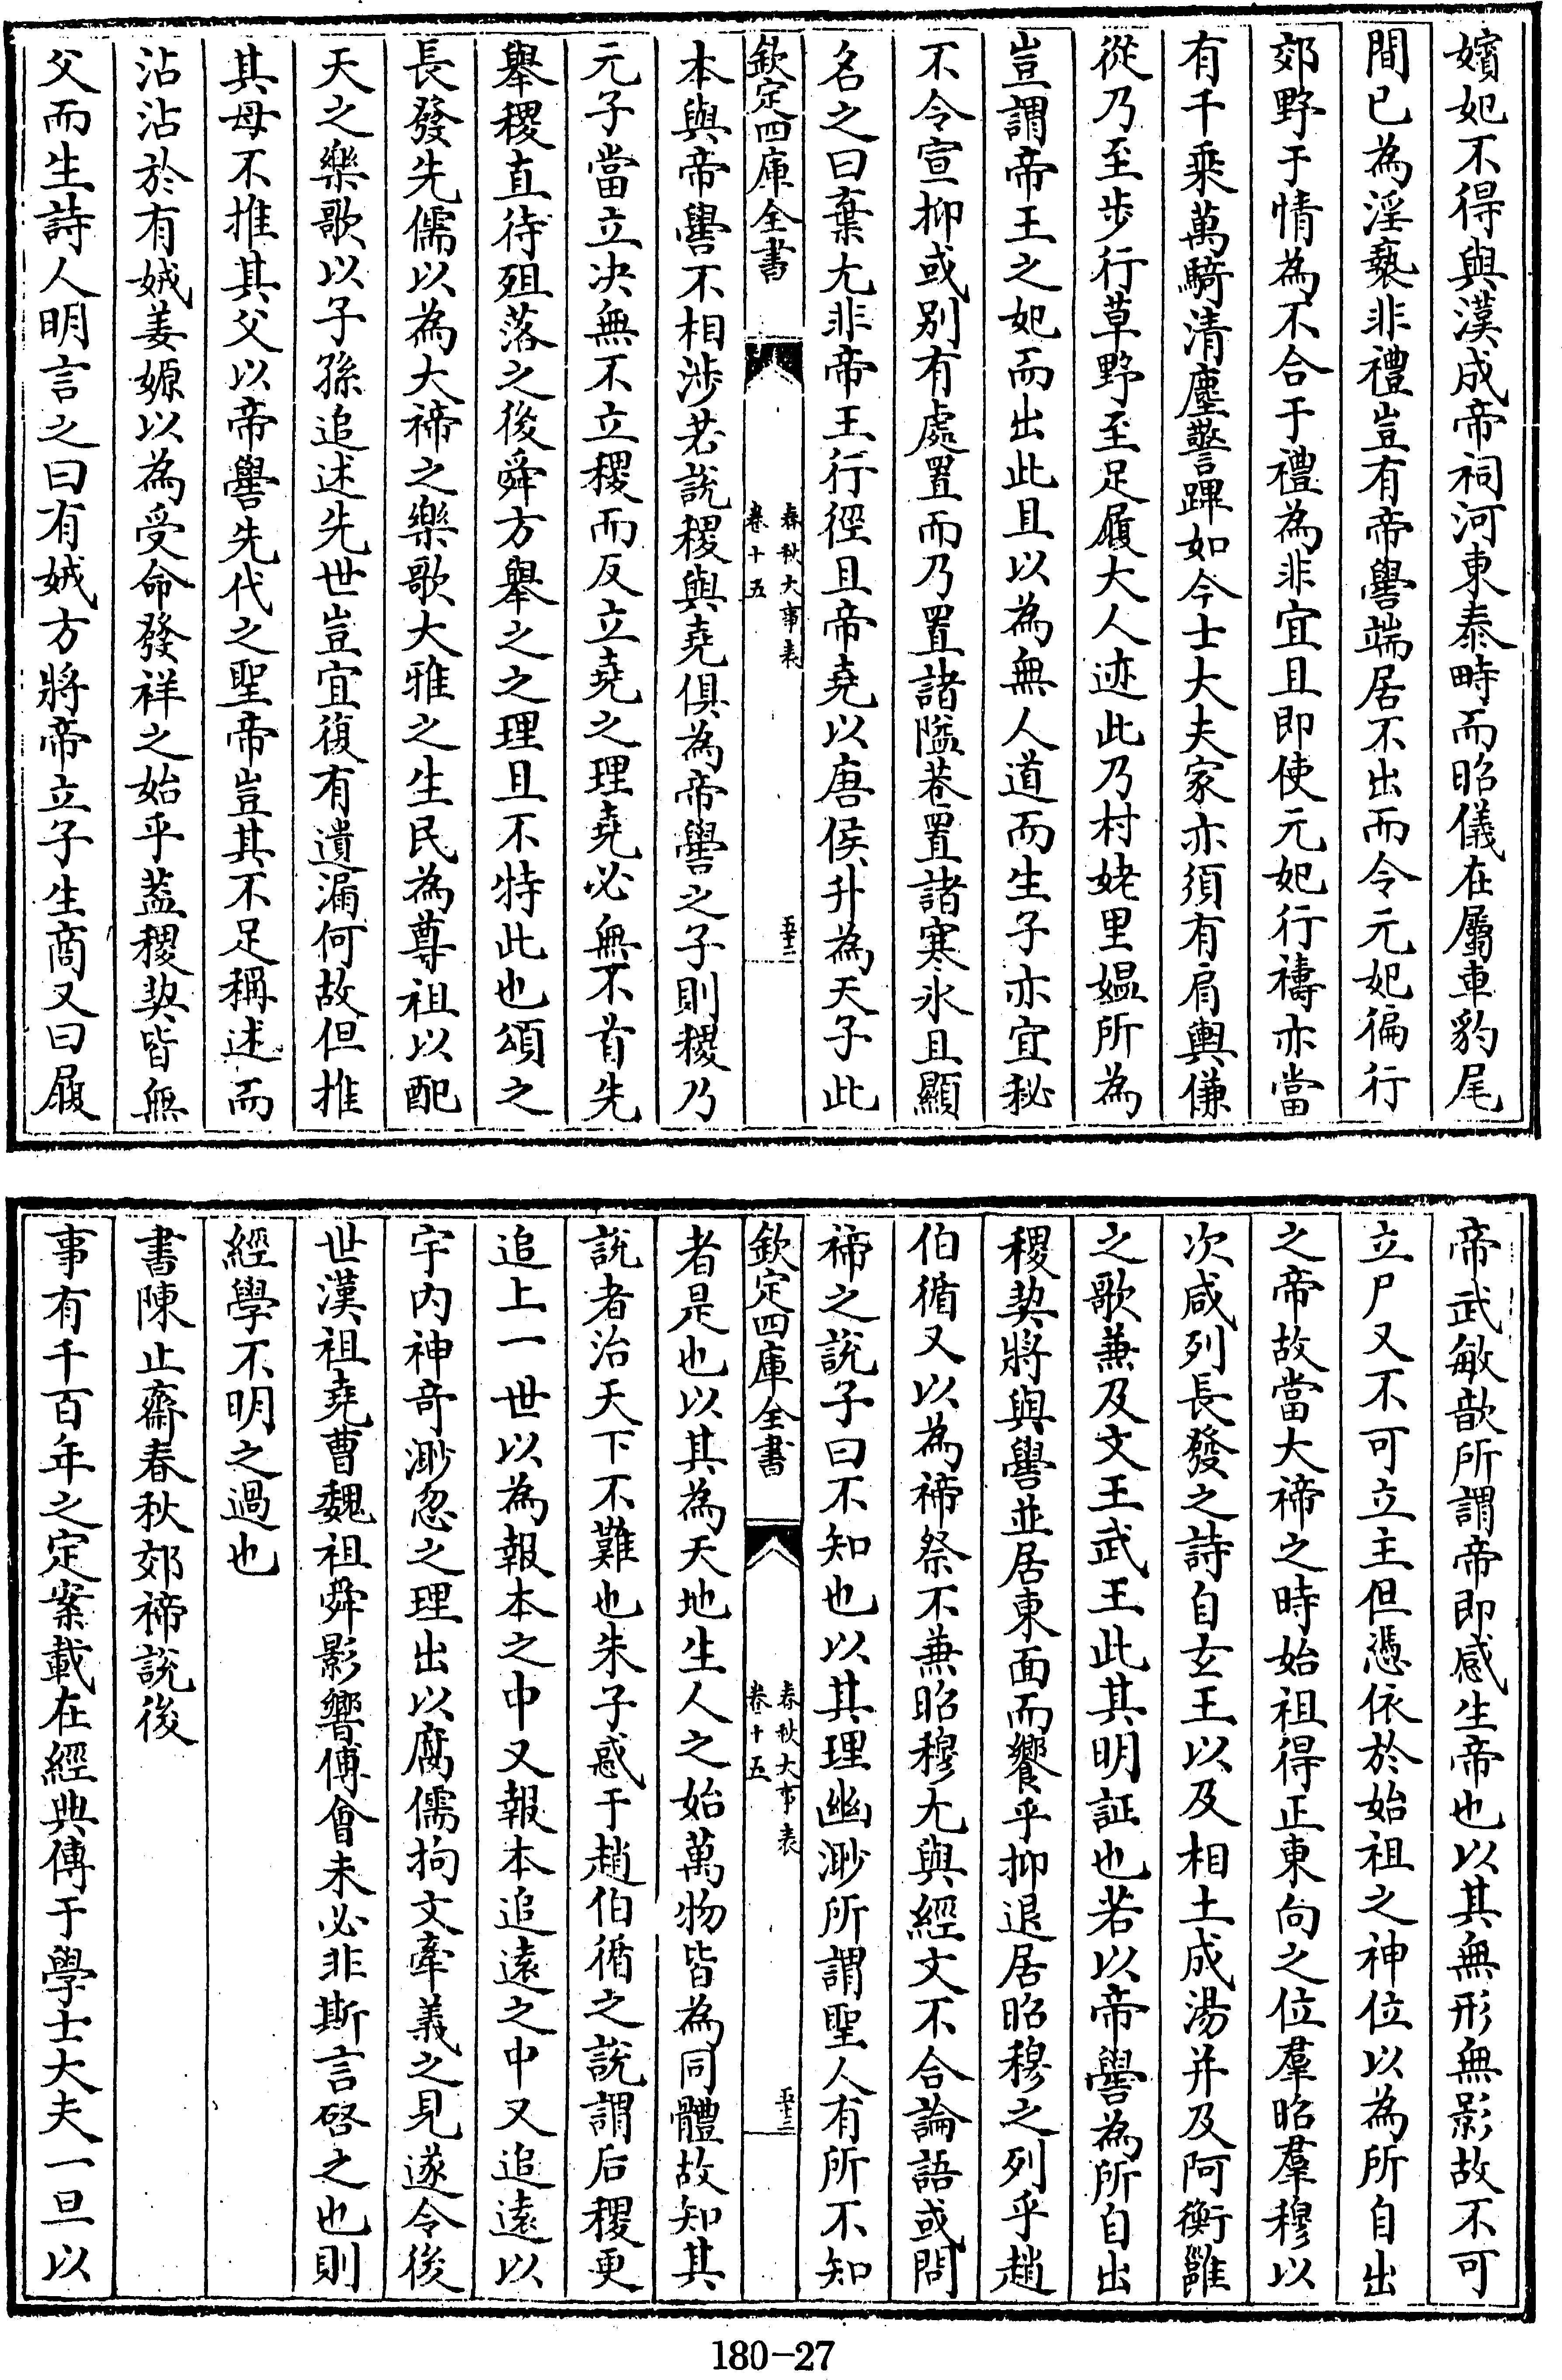 嬪妃不得與漢成帝祠河東泰畤而昭儀在屬車豹尾
間已為淫褻非禮豈有帝嚳端居不出而令元妃徧行
郊野于情為不合于禮為非宜且即使元妃行禱亦當
有千乘萬騎清塵警蹕如今士大夫家亦須有肩輿傔
從乃至步行草野至足履大人迹此乃村姥里媼所為
豈謂帝王之妃而出此且以為無人道而生子亦宜秘
不令宣抑或别有處置而乃置諸隘巷置諸寒氷且顯
名之曰棄尤非帝王行徑且帝堯以唐侯升為天子此
欽定四庫全書
春秋大事表
卷十五
五十二
本與帝嚳不相涉若說稷與堯俱為帝嚳之子則稷乃
元子當立决無不立稷而反立堯之理堯必無不首先
舉稷直待殂落之後舜方舉之之理且不特此也頌之
長發先儒以為大禘之樂歌大雅之生民為尊祖以配
天之樂歌以子孫追述先世豈宜復有遺漏何故但推
其母不推其父以帝嚳先代之聖帝豈其不足稱述而
沾沾於有娀姜嫄以為受命發祥之始乎葢稷契皆無
父而生詩人明言之曰有娀方將帝立子生商又曰履
帝武敏歆所謂帝即感生帝也以其無形無影故不可
立尸又不可立主但憑依於始祖之神位以為所自出
之帝故當大禘之時始祖得正東向之位羣昭羣穆以
次咸列長發之詩自玄王以及相土成湯并及阿衡雝
之歌兼及文王武王此其明証也若以帝嚳為所自出
稷契將與嚳並居東面而饗乎抑退居昭穆之列乎趙
伯循又以為禘祭不兼昭穆尤與經文不合論語或問
禘之說子曰不知也以其理幽渺所謂聖人有所不知
欽定四庫全書
春秋大事表
卷十五
五十三
者是也以其為天地生人之始萬物皆為同體故知其
說者治天下不難也朱子惑于趙伯循之說謂后稷更
追上一世以為報本之中又報本追遠之中又追遠以
宇内神奇渺忽之理出以腐儒拘文牽義之見遂令後
世漢祖堯曹魏祖舜影響傅會未必非斯言啓之也則
經學不明之過也
書陳止齋春秋郊禘說後
事有千百年之定案載在經典傳于學士大夫一旦以
180-27